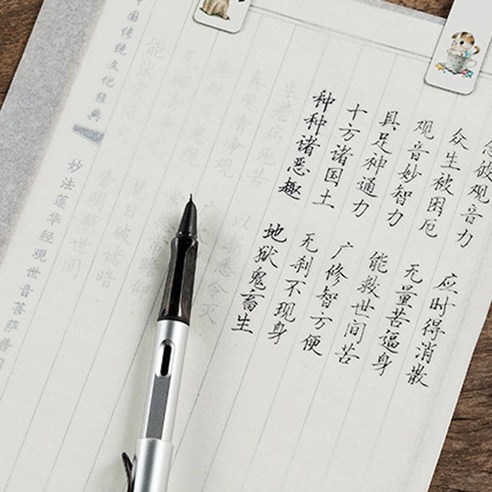 念彼观音力 应时得消散
众生被困厄 无量苦逼身
观音妙智力 能救世间苦
具足神通力 广修智方便
十方诸国土 无刹不现身
种种诸恶趣 地狱鬼畜生
生老病死苦 以渐悉令灭
真观清净观
中国传统文化经典
妙法莲华经观世音菩萨普门